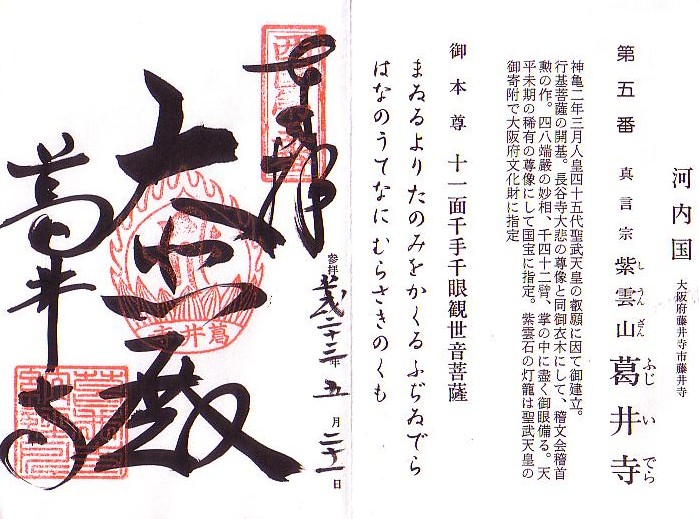 河内国 大阪府藤井寺市藤井寺
第五番 真言宗 紫雲山 葛井寺
し うん ざん ふじ い でら
神亀二年三月人皇四十五代聖武天皇の叡願に因て御建立。
行基菩薩の開基。長谷寺大悲の尊像と同御衣木にして、稽文会稽首
勲の作。四八端厳の妙相、千四十二臂、掌の中に尽く御眼備る。天
平末期の稀有の尊像にして国宝に指定。紫雲石の灯籠は聖武天皇の
御寄附で大阪府文化財に指定
御本尊 十一面千手千眼観世音菩薩
まゐるよりたのみをかくるふぢゐでら
はなのうてなに むらさきのくも
参拝 二十三年五月二十一日
奉拝
大悲殿
葛井寺
葛井寺